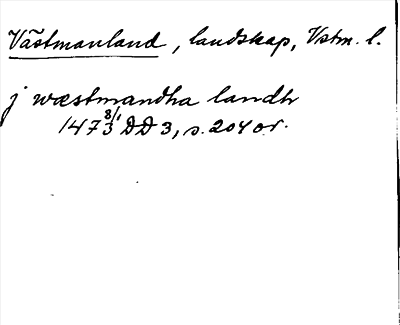 Västmanland, landskap, Vstm. l.
j wæstmandha landh
1473 8/1 DD 3, s. 204 or.